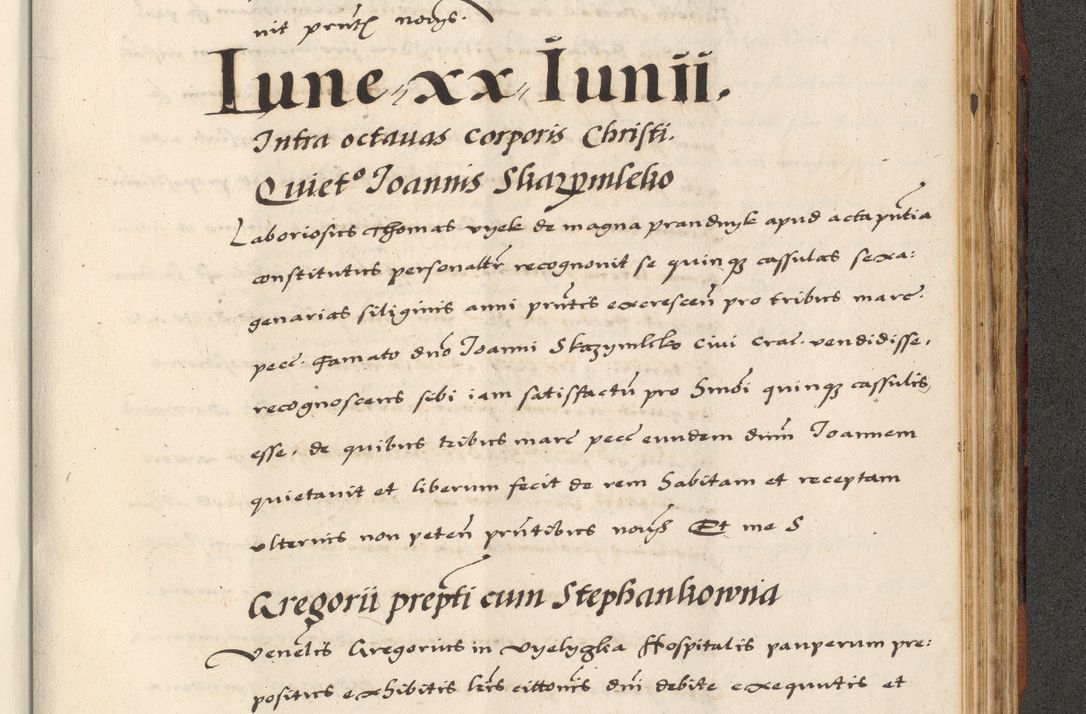 nit prnt nots.
Lune xx Iunii.
Intra octauas Corporis Christi.
Quieto Ioannis Skarzymlsko
Laboriosus Thomas vyek de magna prandnyk apud acta pntia
constitutus personalr recognouit se quinqz cassulas sexa:
genarias siliginis anni prntis excrescen pro tribus marc.
pecc. Famato dno Ioanni Skazymlsko ciui Crac. vendidisse.
recognoscens sibi iam satisfactu pro hmoi quinqz cassulis
esse. de quibus tribus marc pecc eundem dnm Ioannem
quietauit et liberum fecit de rem habitam et receptam
vlterius non peten prntibus nots Et me S
Gregorii prepti cum Stephankowna
Venelis Gregorius in vyelyglka Hospitalis pauperum pre:
positus exhibitis lris cittonis dni debite exequutis et